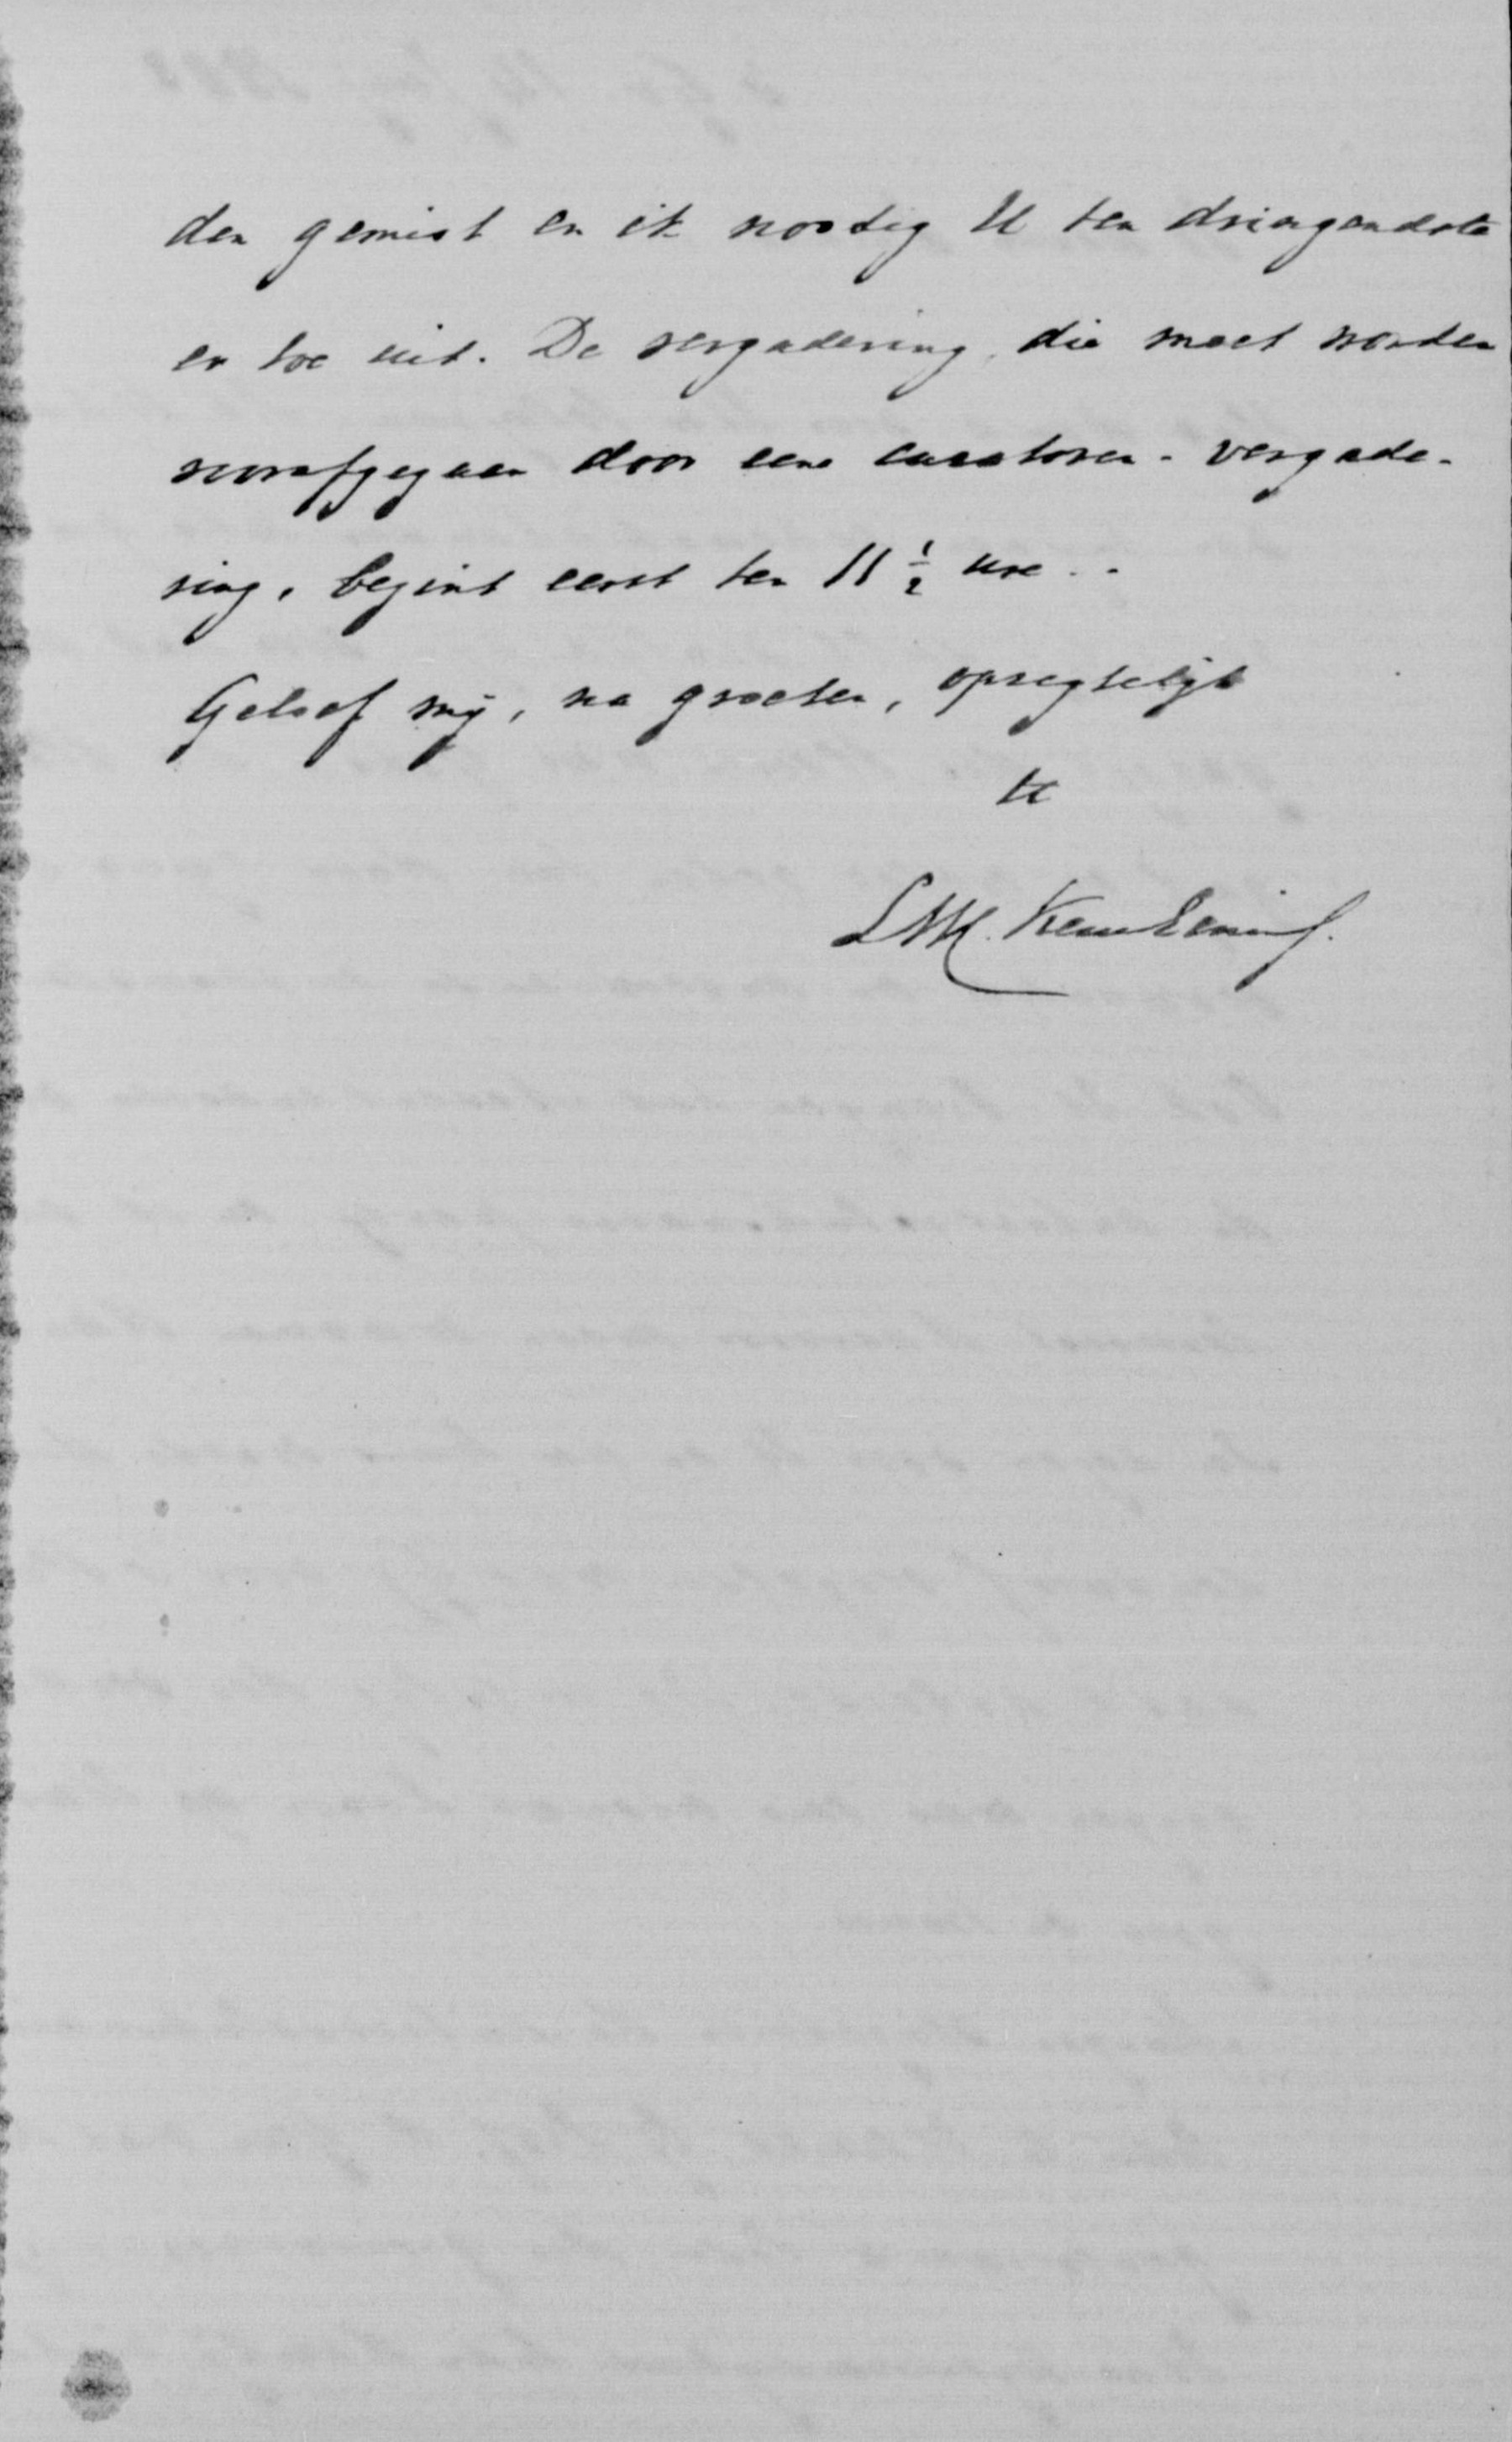 den gemist en ik noodig U ten dringendste
er toe uit. De vergadering, die moet worden
voorafgegaan door eene curatoren-vergade-
ring, begint eerst ten 11 1/2 ure.
Geloof mij, na groeten, opregtelijk
tt